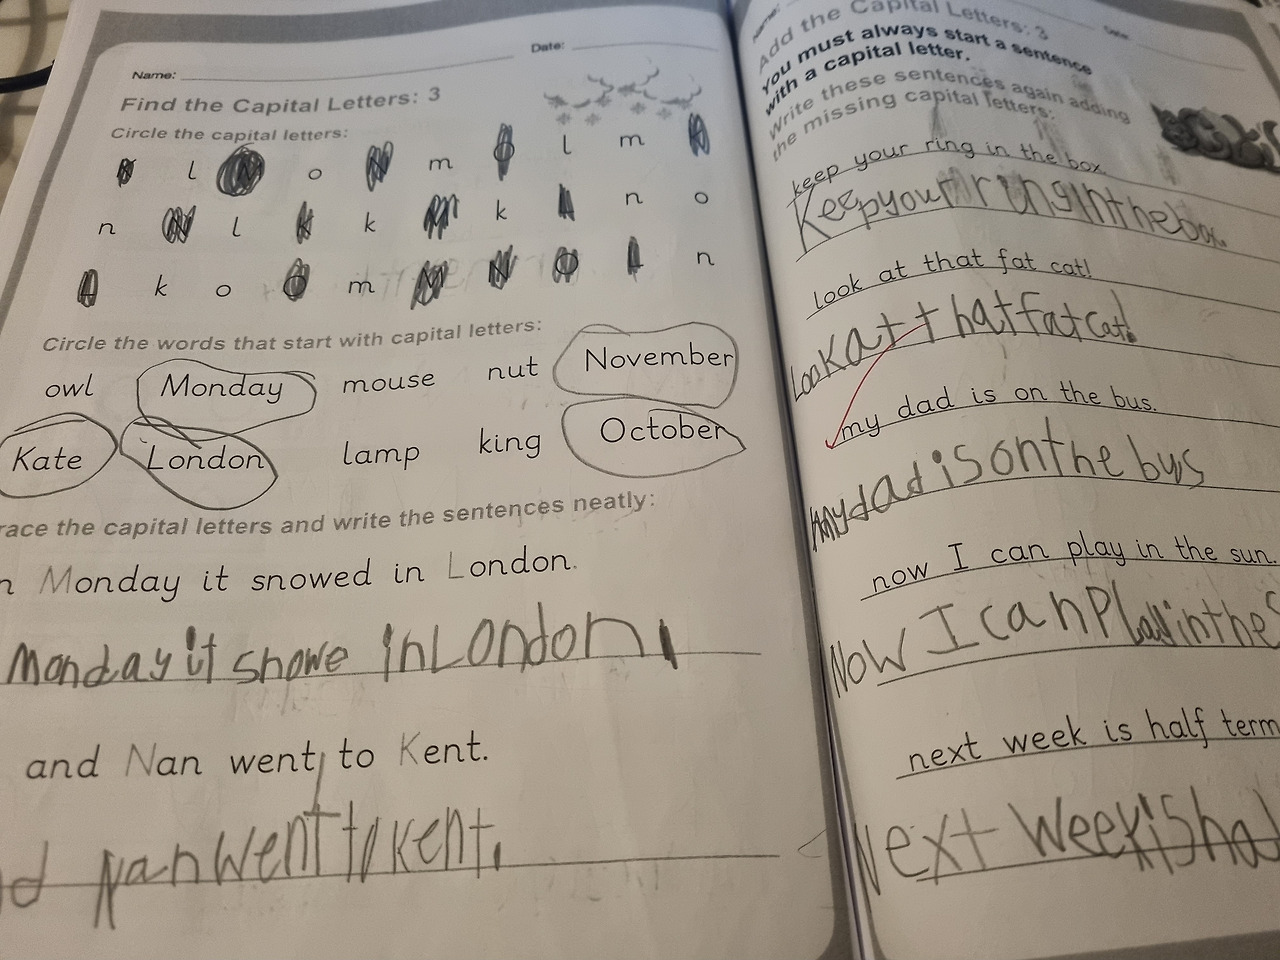 Name:
Date:
Find the Capital Letters: 3
Circle the capital letters:
l o m l m
n l k k n o
k o m n
Circle the words that start with capital letters:
owl Monday mouse nut November
Kate London lamp king October
race the capital letters and write the sentences neatly:
n Monday it snowed in London.
Monday it showe in London
and Nan went to Kent.
d Nan went to Kent.
Name:
Add the Capital Letters: 3
You must always start a sentence
with a capital letter.
Write these sentences again adding
the missing capital letters:
keep your ring in the box.
Keep your ring in the box.
look at that fat cat!
Look at that fat cat!
my dad is on the bus.
My dad is on the bus
now I can play in the sun.
Now I can play in the s
next week is half term
Next week is hal